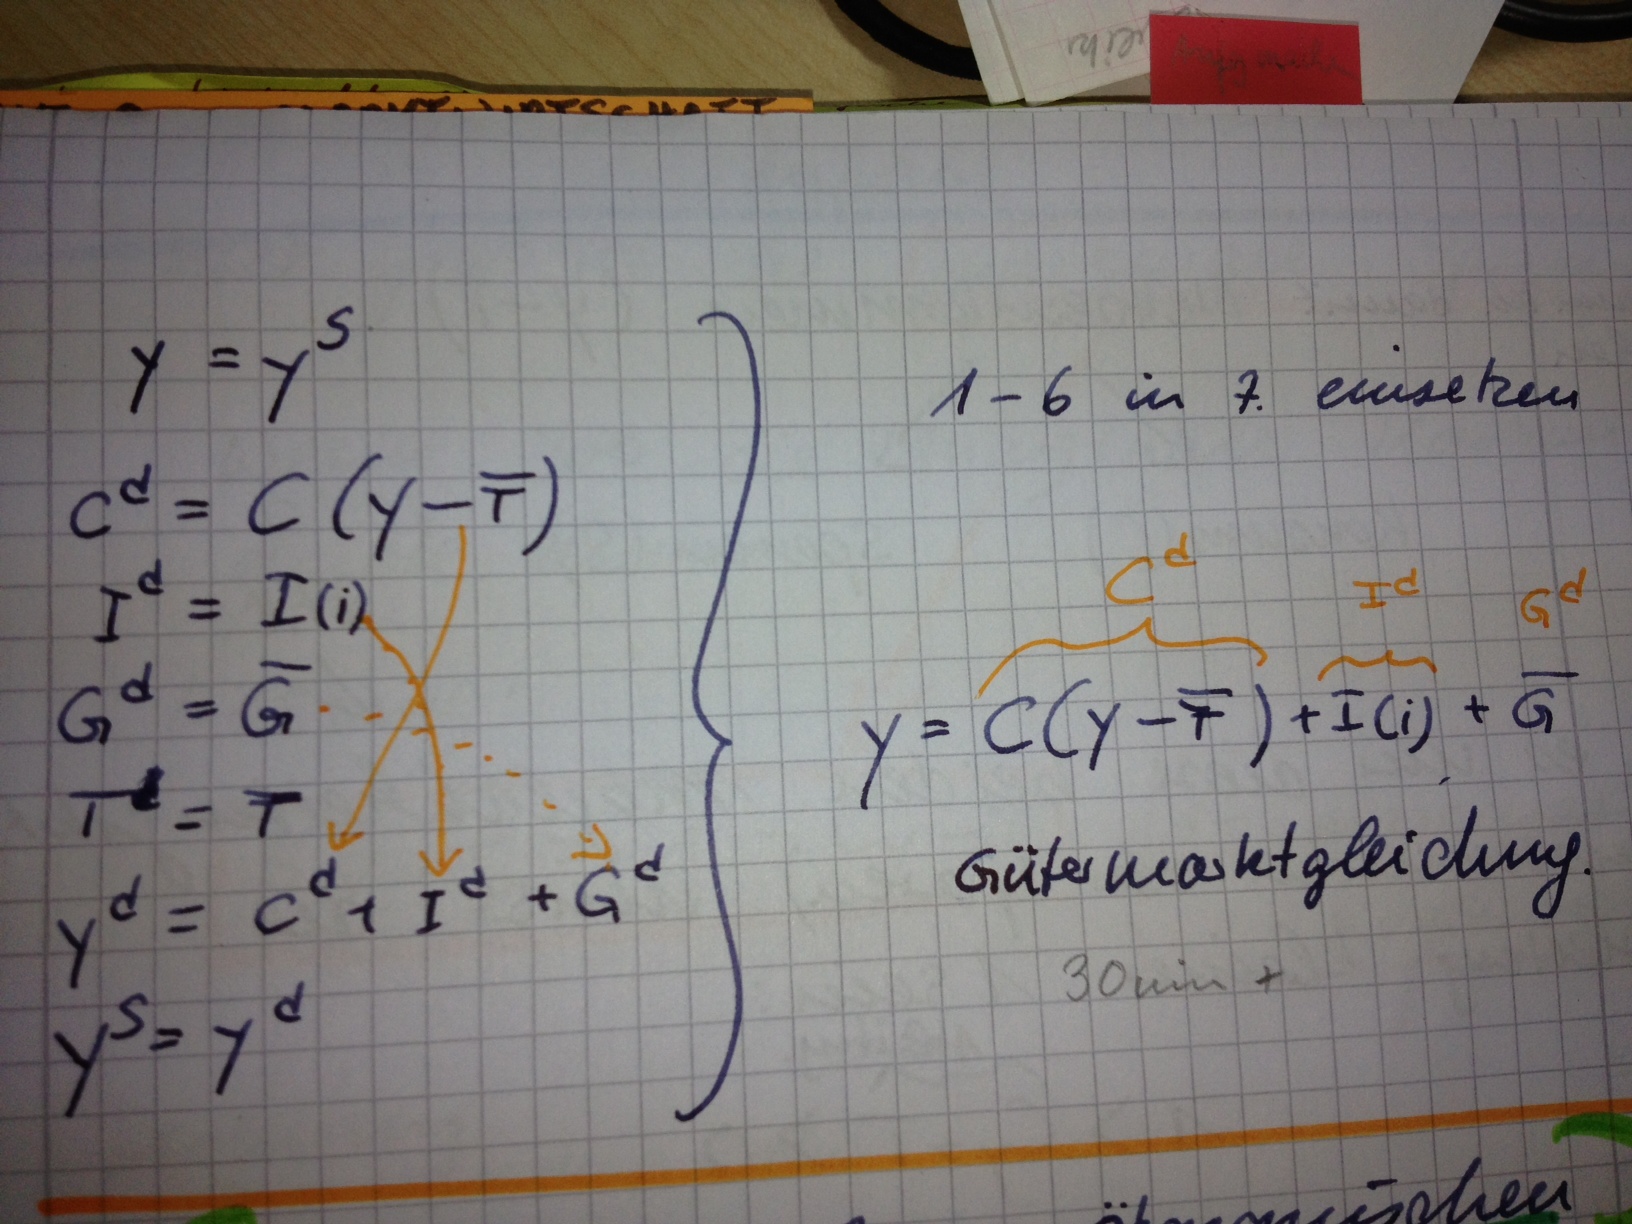 y = y^S
C^d = C (y - T̅)
I^d = I(i)
G^d = G̅
T = T
y^d = C^d + I^d + G^d
y^S = y^d
1 - 6 in 7. einsetzen
C^d I^d G^d
y = C(y - T̅) + I(i) + G̅
Gütermarktgleichung.
30min +